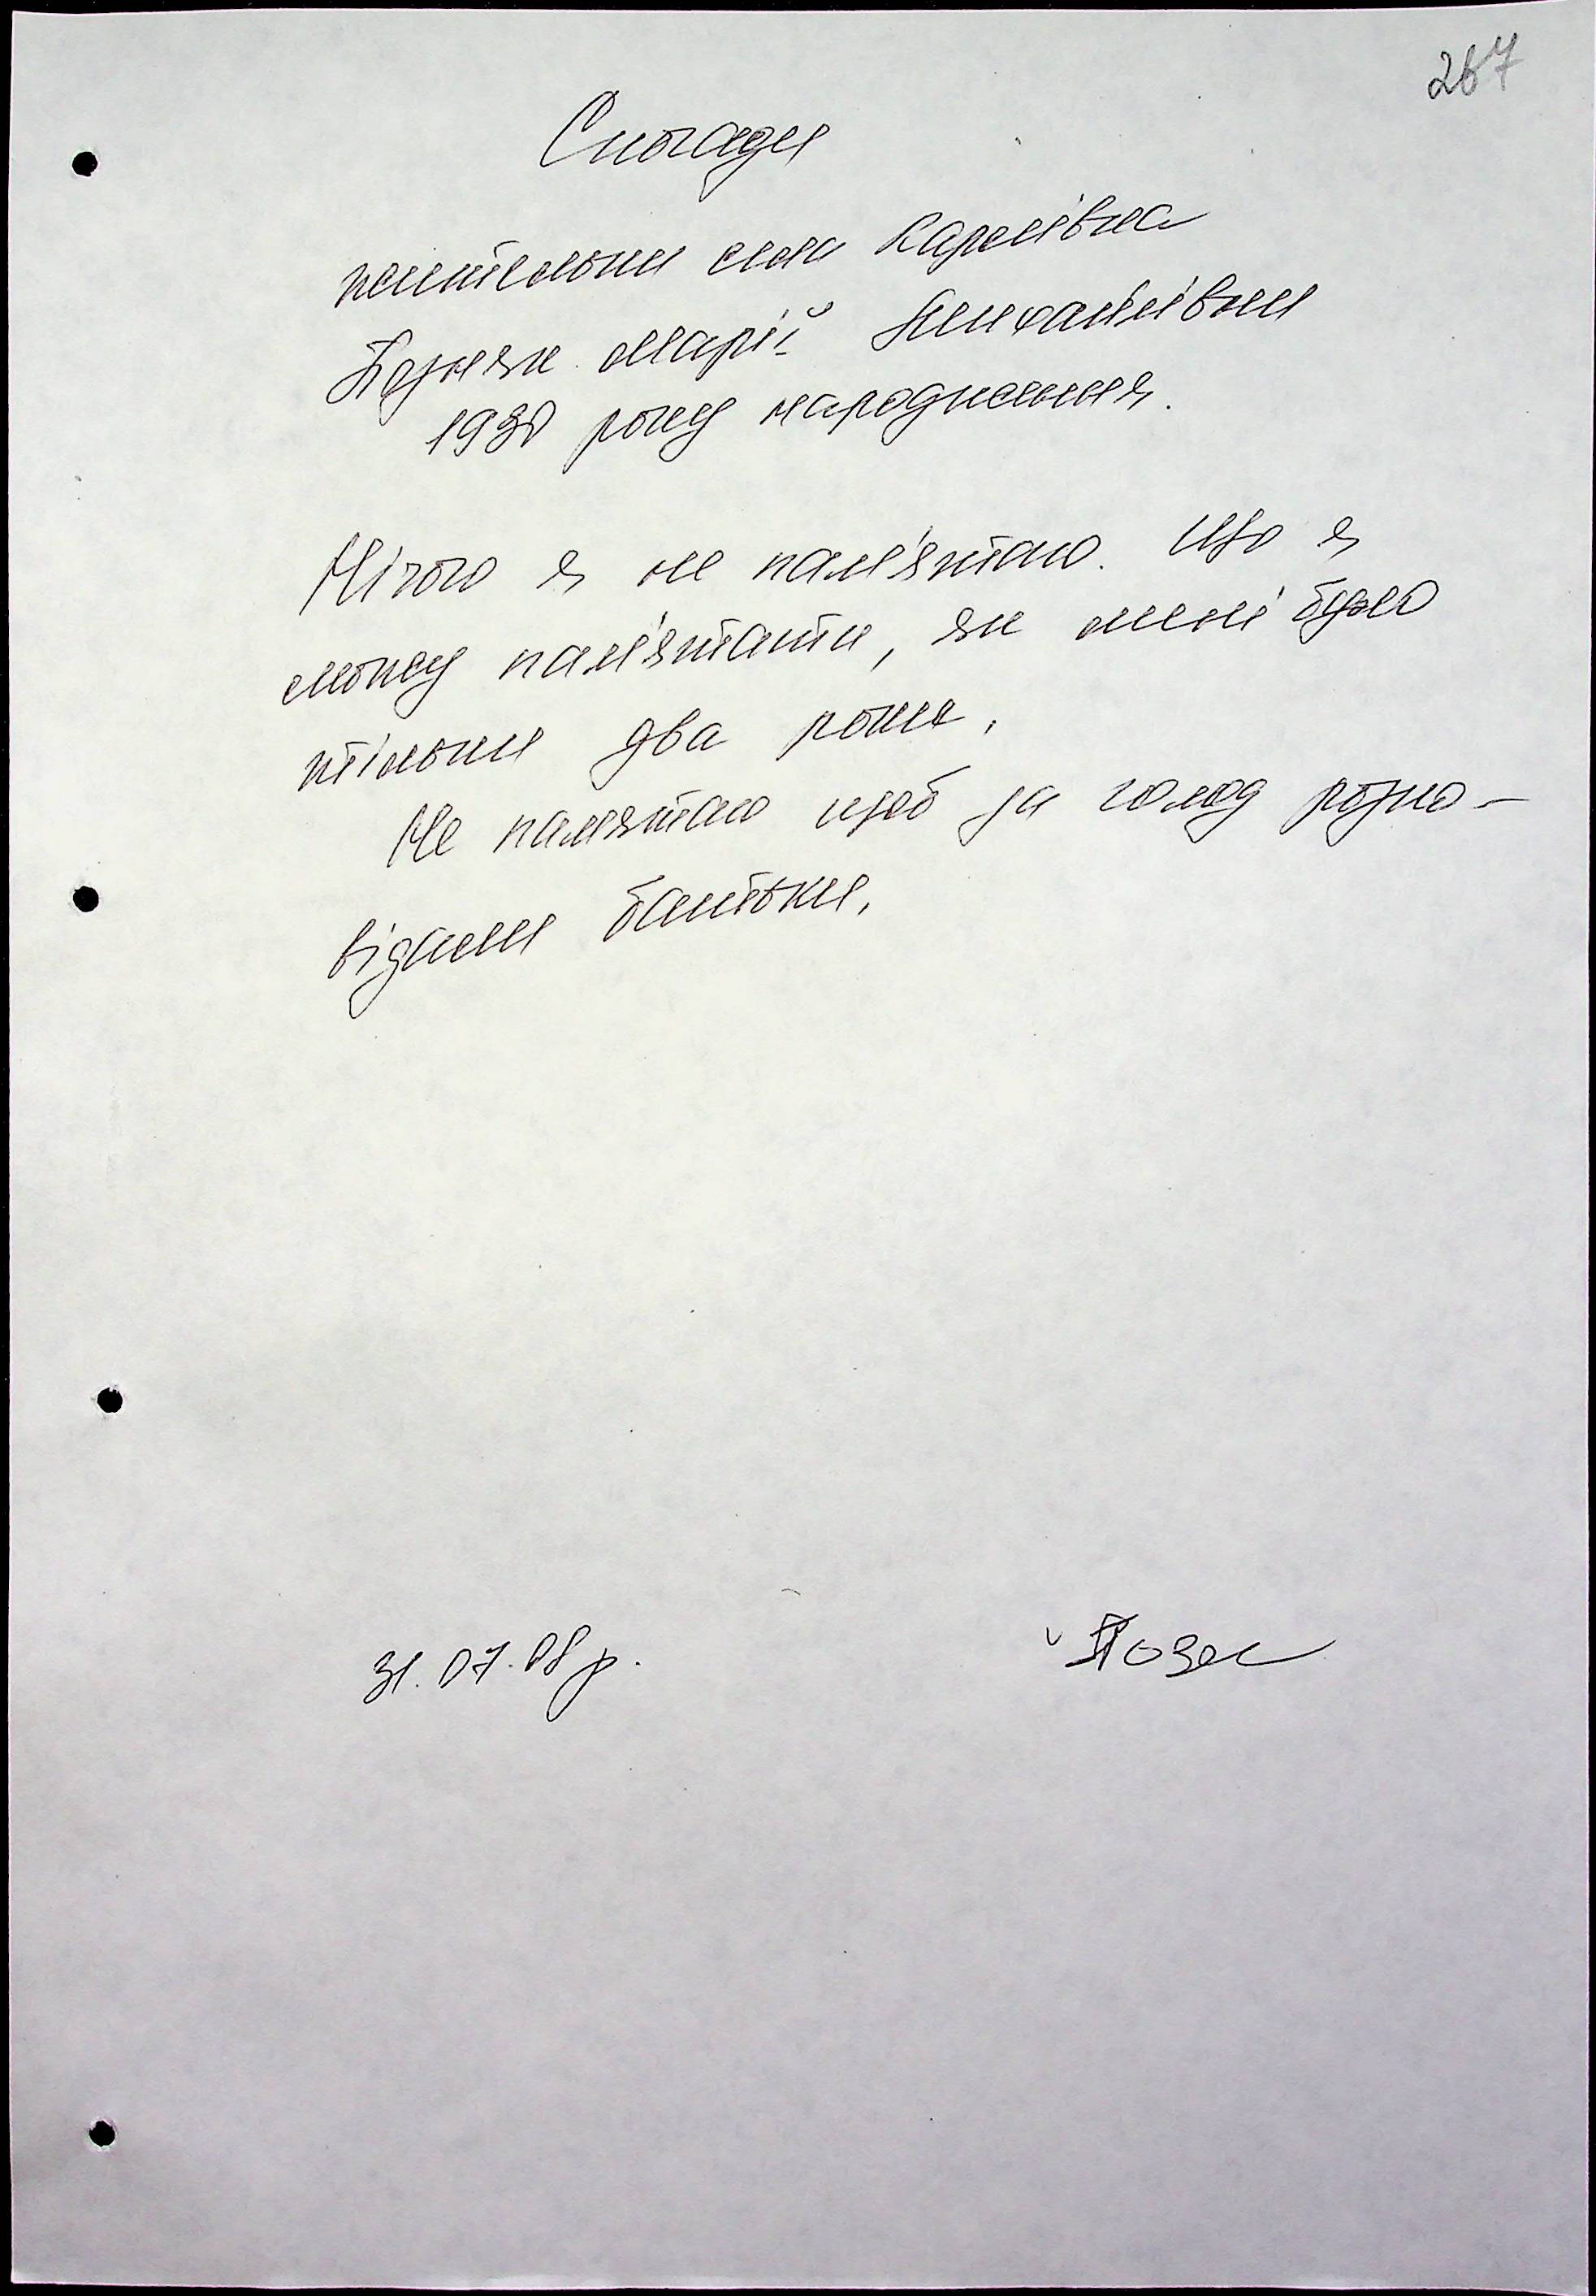 267
Спогади
жительки села Карлівка
Позняк Марії Михайлівни
1930 року народження.
Нічого я не пам'ятаю. Що я
можу пам'ятати, як мені було
тільки два роки.
Не памятаю щоб за голод розпо-
відали батьки.
31.07.08р.